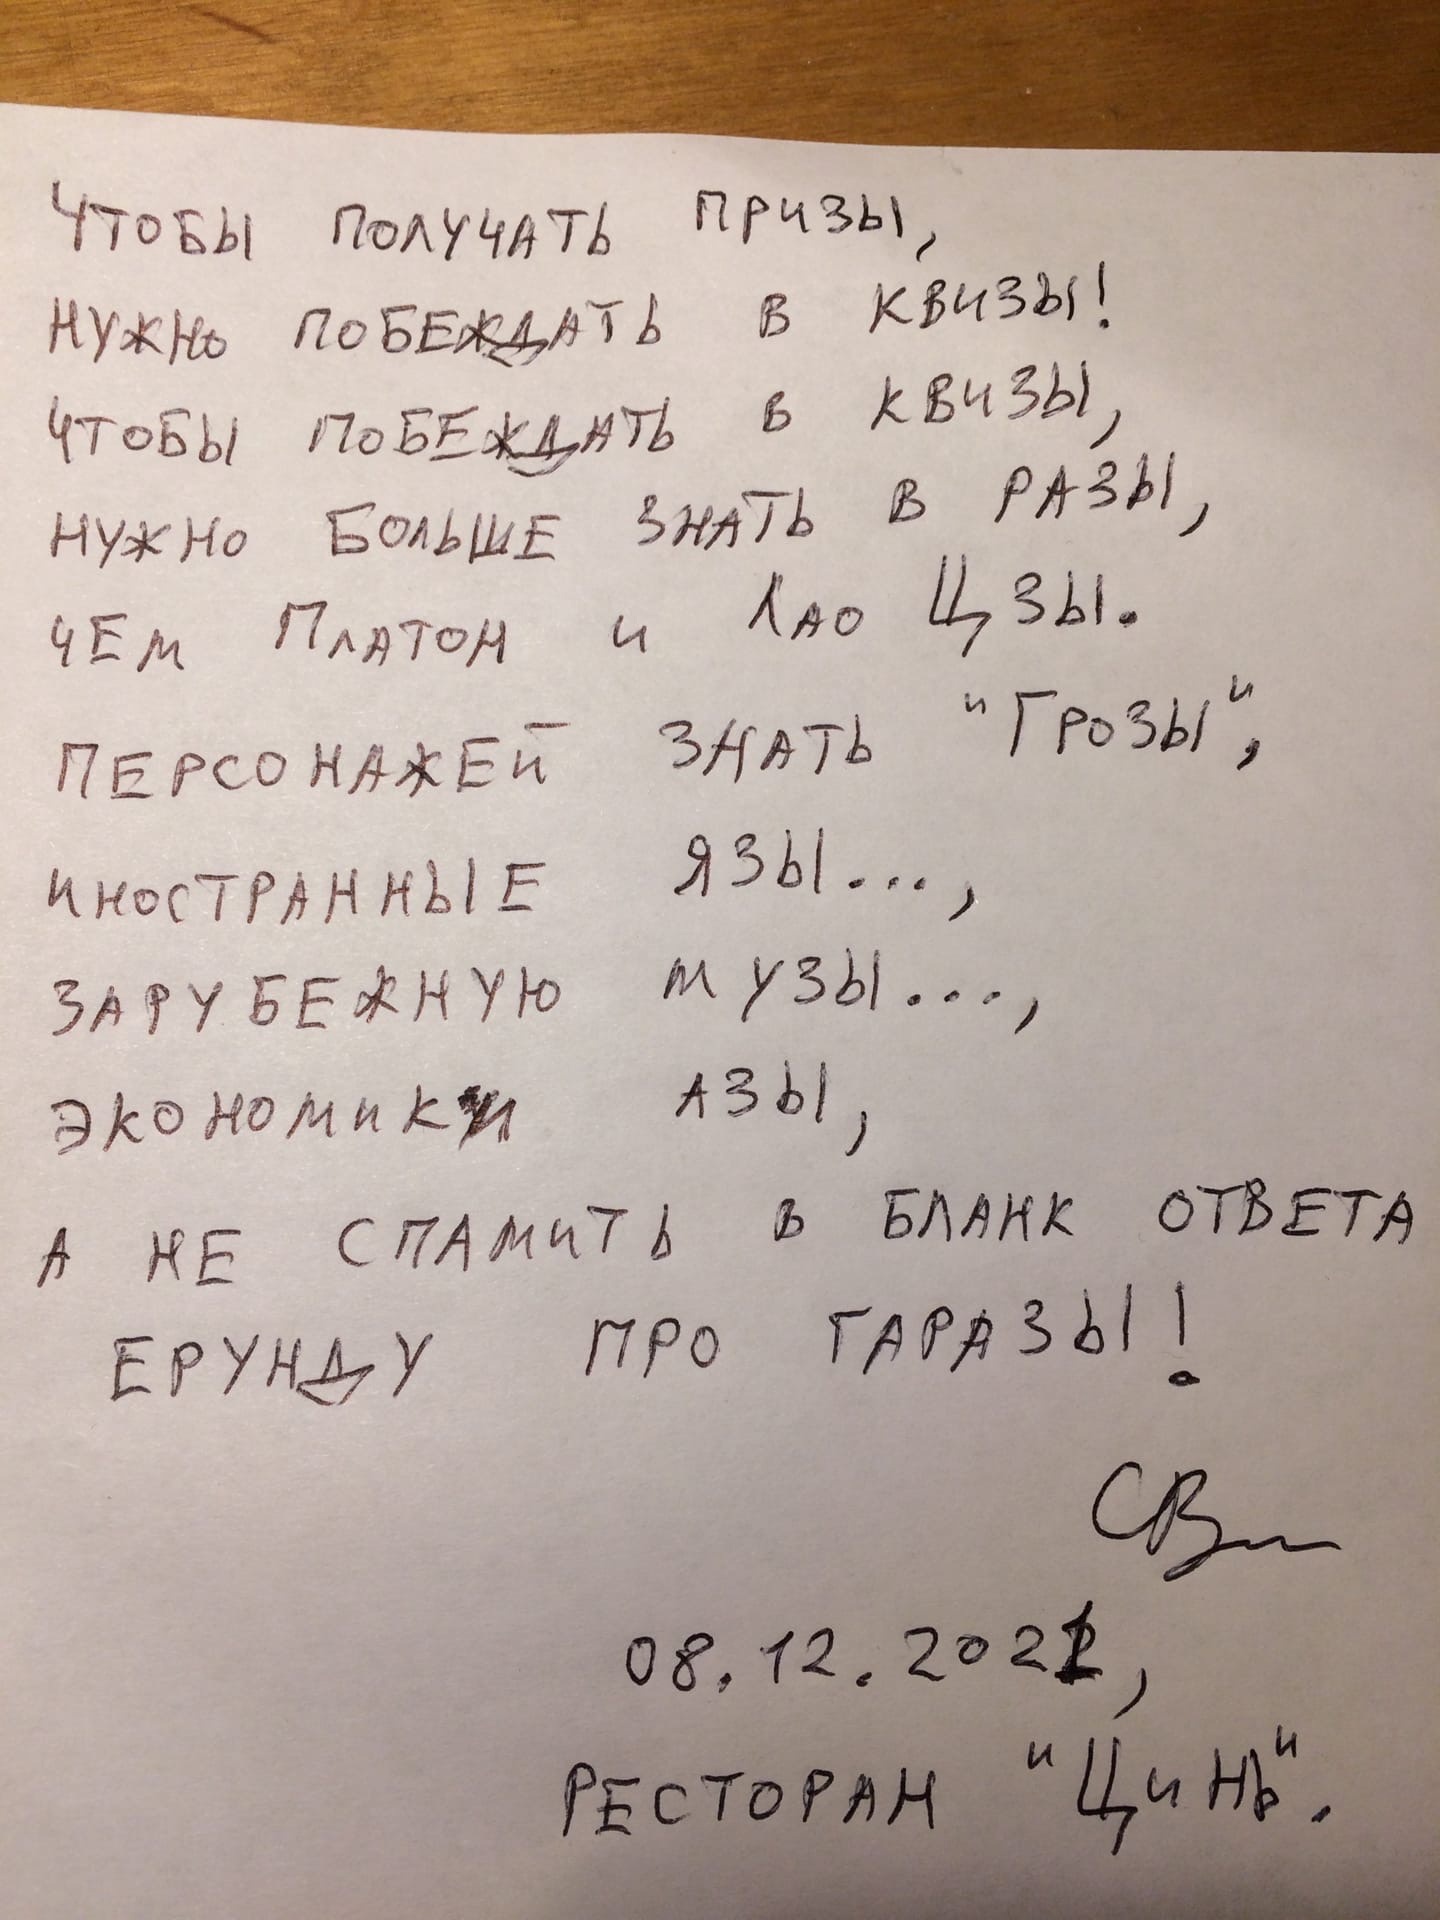 Чтобы получать призы,
нужно побеждать в квизы!
Чтобы побеждать в квизы,
нужно больше знать в разы,
чем Платон и Лао Цзы.
Персонажей знать "Грозы",
иностранные язы...,
зарубежную музы...,
экономики азы,
а не спамить в бланк ответа
ерунду про гаражы!
08.12.2021,
Ресторан "Цинь".